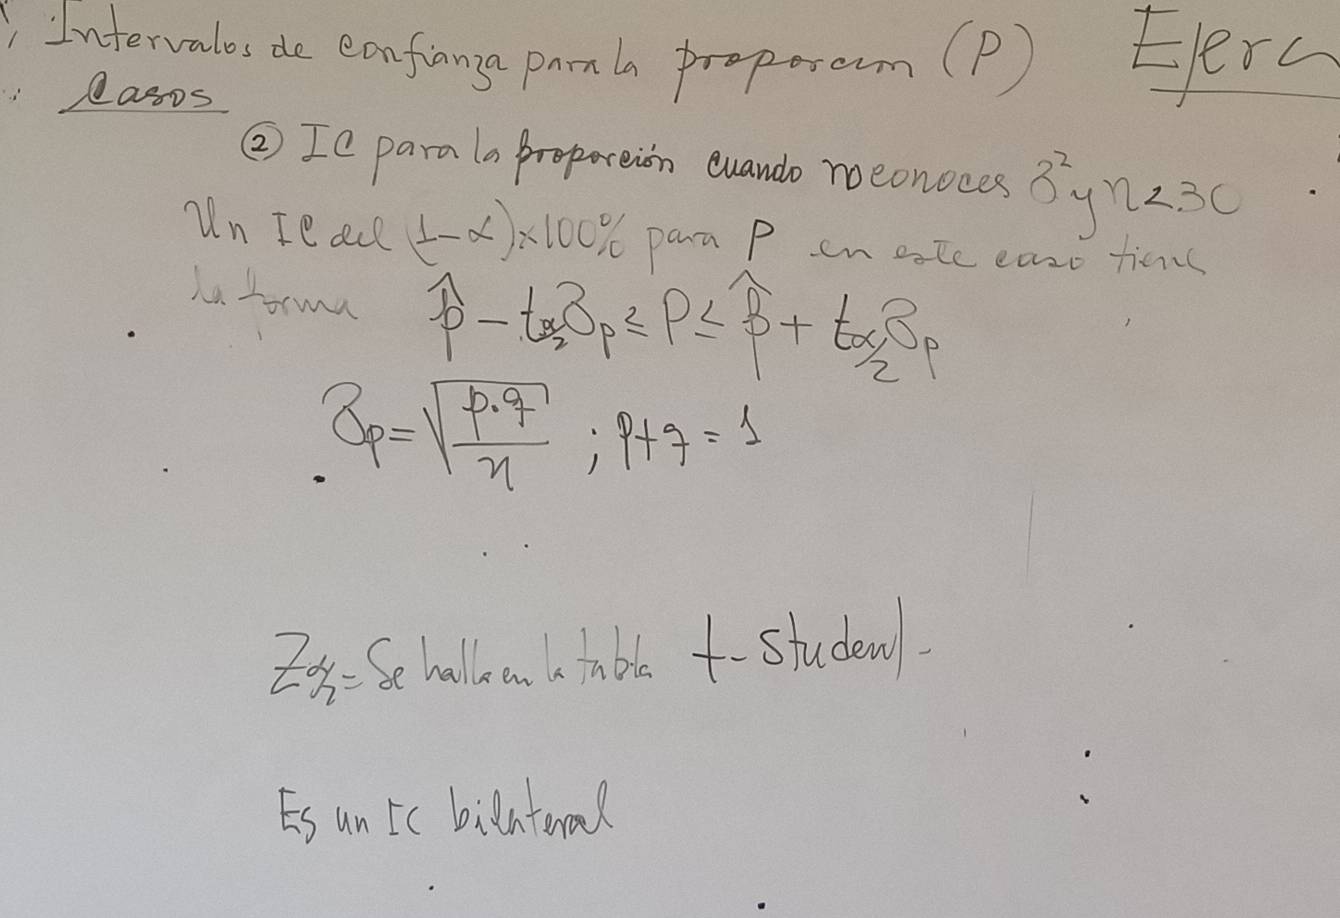 Intervalos de confianza para la proporcion (P) Ejerc
Casos
② IC para la proporción cuando no conoces σ² y n<30
Un IC del (1-α)×100% para P en este caso tiene
la forma p̂ - t α/2 σp ≤ P ≤ p̂ + t α/2 σp
σp = √(p.q / n) ; p+q = 1
Z α/2 = Se halla en la tabla t-student-
Es un IC bilateral